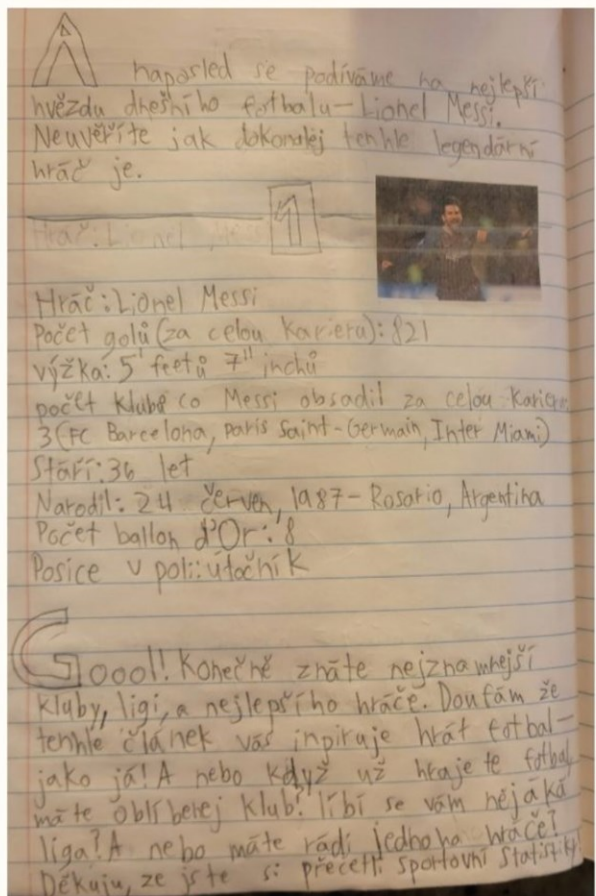 A naposled se podíváme na nejlepší
hvězdu dnešního fotbalu-Lionel Messi.
Neuvěříte jak dokonalej tenhle legendární
hráč je.
1
Hráč:Lionel Mess
Hráč:Lionel Messi
Počet golů(za celou karieru):821
výžka:5' feetů 7" inchů
počet klubů co Messi obsadil za celou karieru
3(FC Barcelona, paris saint-Germain, Inter Miami)
Stáří:36 let
Narodil: 24 červen, 1987-Rosario, Argentina
Počet ballon d'Or: 8
Posice v poli:útočník
Goool! Konečně znáte nejznamnejší
kluby, ligi, a nejlepšího hráče. Doufám že
tenhle článek vás inpiruje hrát fotbal-
jako já! A nebo když už hrajete fotbal
máte oblíbenej klub? líbí se vám nějáká
liga? A nebo máte rádi jednoho hráče?
Děkuju, ze jste si přečetli sportovní statistiky!